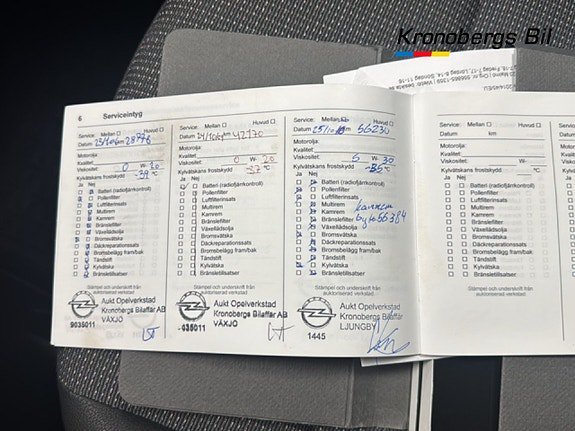 Kronobergs Bil
6 Serviceintyg
Service: Mellan ☐ Huvud ☐
Datum km 28776
Motorolja:
Kvalitet:
Viskositet: 0 W- 20
Kylvätskans fryspunkt -39 °C
Ja Nej
Batteri (radiofjärrkontroll)
Pollenfilter
Luftfilterinsats
Multirem
Kamrem
Bränslefilter
Växellådsolja
Bromsvätska
Däckreparationssats
Bromsbelägg fram/bak
Tändstift
Kylvätska
Bränsletillsatser
Stämpel och underskrift från
auktoriserad verkstad.
Aukt Opelverkstad
Kronobergs Bilaffär AB
VÄXJÖ
9035011
Service: Mellan ☐ Huvud ☐
Datum km 42170
Motorolja:
Kvalitet:
Viskositet: 0 W- 20
Kylvätskans frostskydd -37 °C
Ja Nej
Batteri (radiofjärrkontroll)
Pollenfilter
Luftfilterinsats
Multirem
Kamrem
Bränslefilter
Växellådsolja
Bromsvätska
Däckreparationssats
Bromsbelägg fram/bak
Tändstift
Kylvätska
Bränsletillsatser
Stämpel och underskrift från
auktoriserad verkstad.
Aukt Opelverkstad
Kronobergs Bilaffär AB
VÄXJÖ
035011
Service: Mellan ☐ Huvud ☐
Datum km 56230
Motorolja:
Kvalitet:
Viskositet: 5 W- 30
Kylvätskans frostskydd -35 °C
Ja Nej
Batteri (radiofjärrkontroll)
Pollenfilter
Luftfilterinsats
Multirem
Kamrem
Bränslefilter
Växellådsolja
Bromsvätska
Däckreparationssats
Bromsbelägg fram/bak
Tändstift
Kylvätska
Bränsletillsatser
kamrem
56384
Stämpel och underskrift från
auktoriserad verkstad.
Aukt Opelverkstad
Kronobergs Bilaffär AB
LJUNGBY
1445
Service: Mellan ☐ Huvud ☐
Datum km
Motorolja:
Kvalitet:
Viskositet: W-
Kylvätskans frostskydd °C
Ja Nej
Batteri (radiofjärrkontroll)
Pollenfilter
Luftfilterinsats
Multirem
Kamrem
Bränslefilter
Växellådsolja
Bromsvätska
Däckreparationssats
Bromsbelägg fram/bak
Tändstift
Kylvätska
Bränsletillsatser
Stämpel och underskrift från
auktoriserad verkstad.